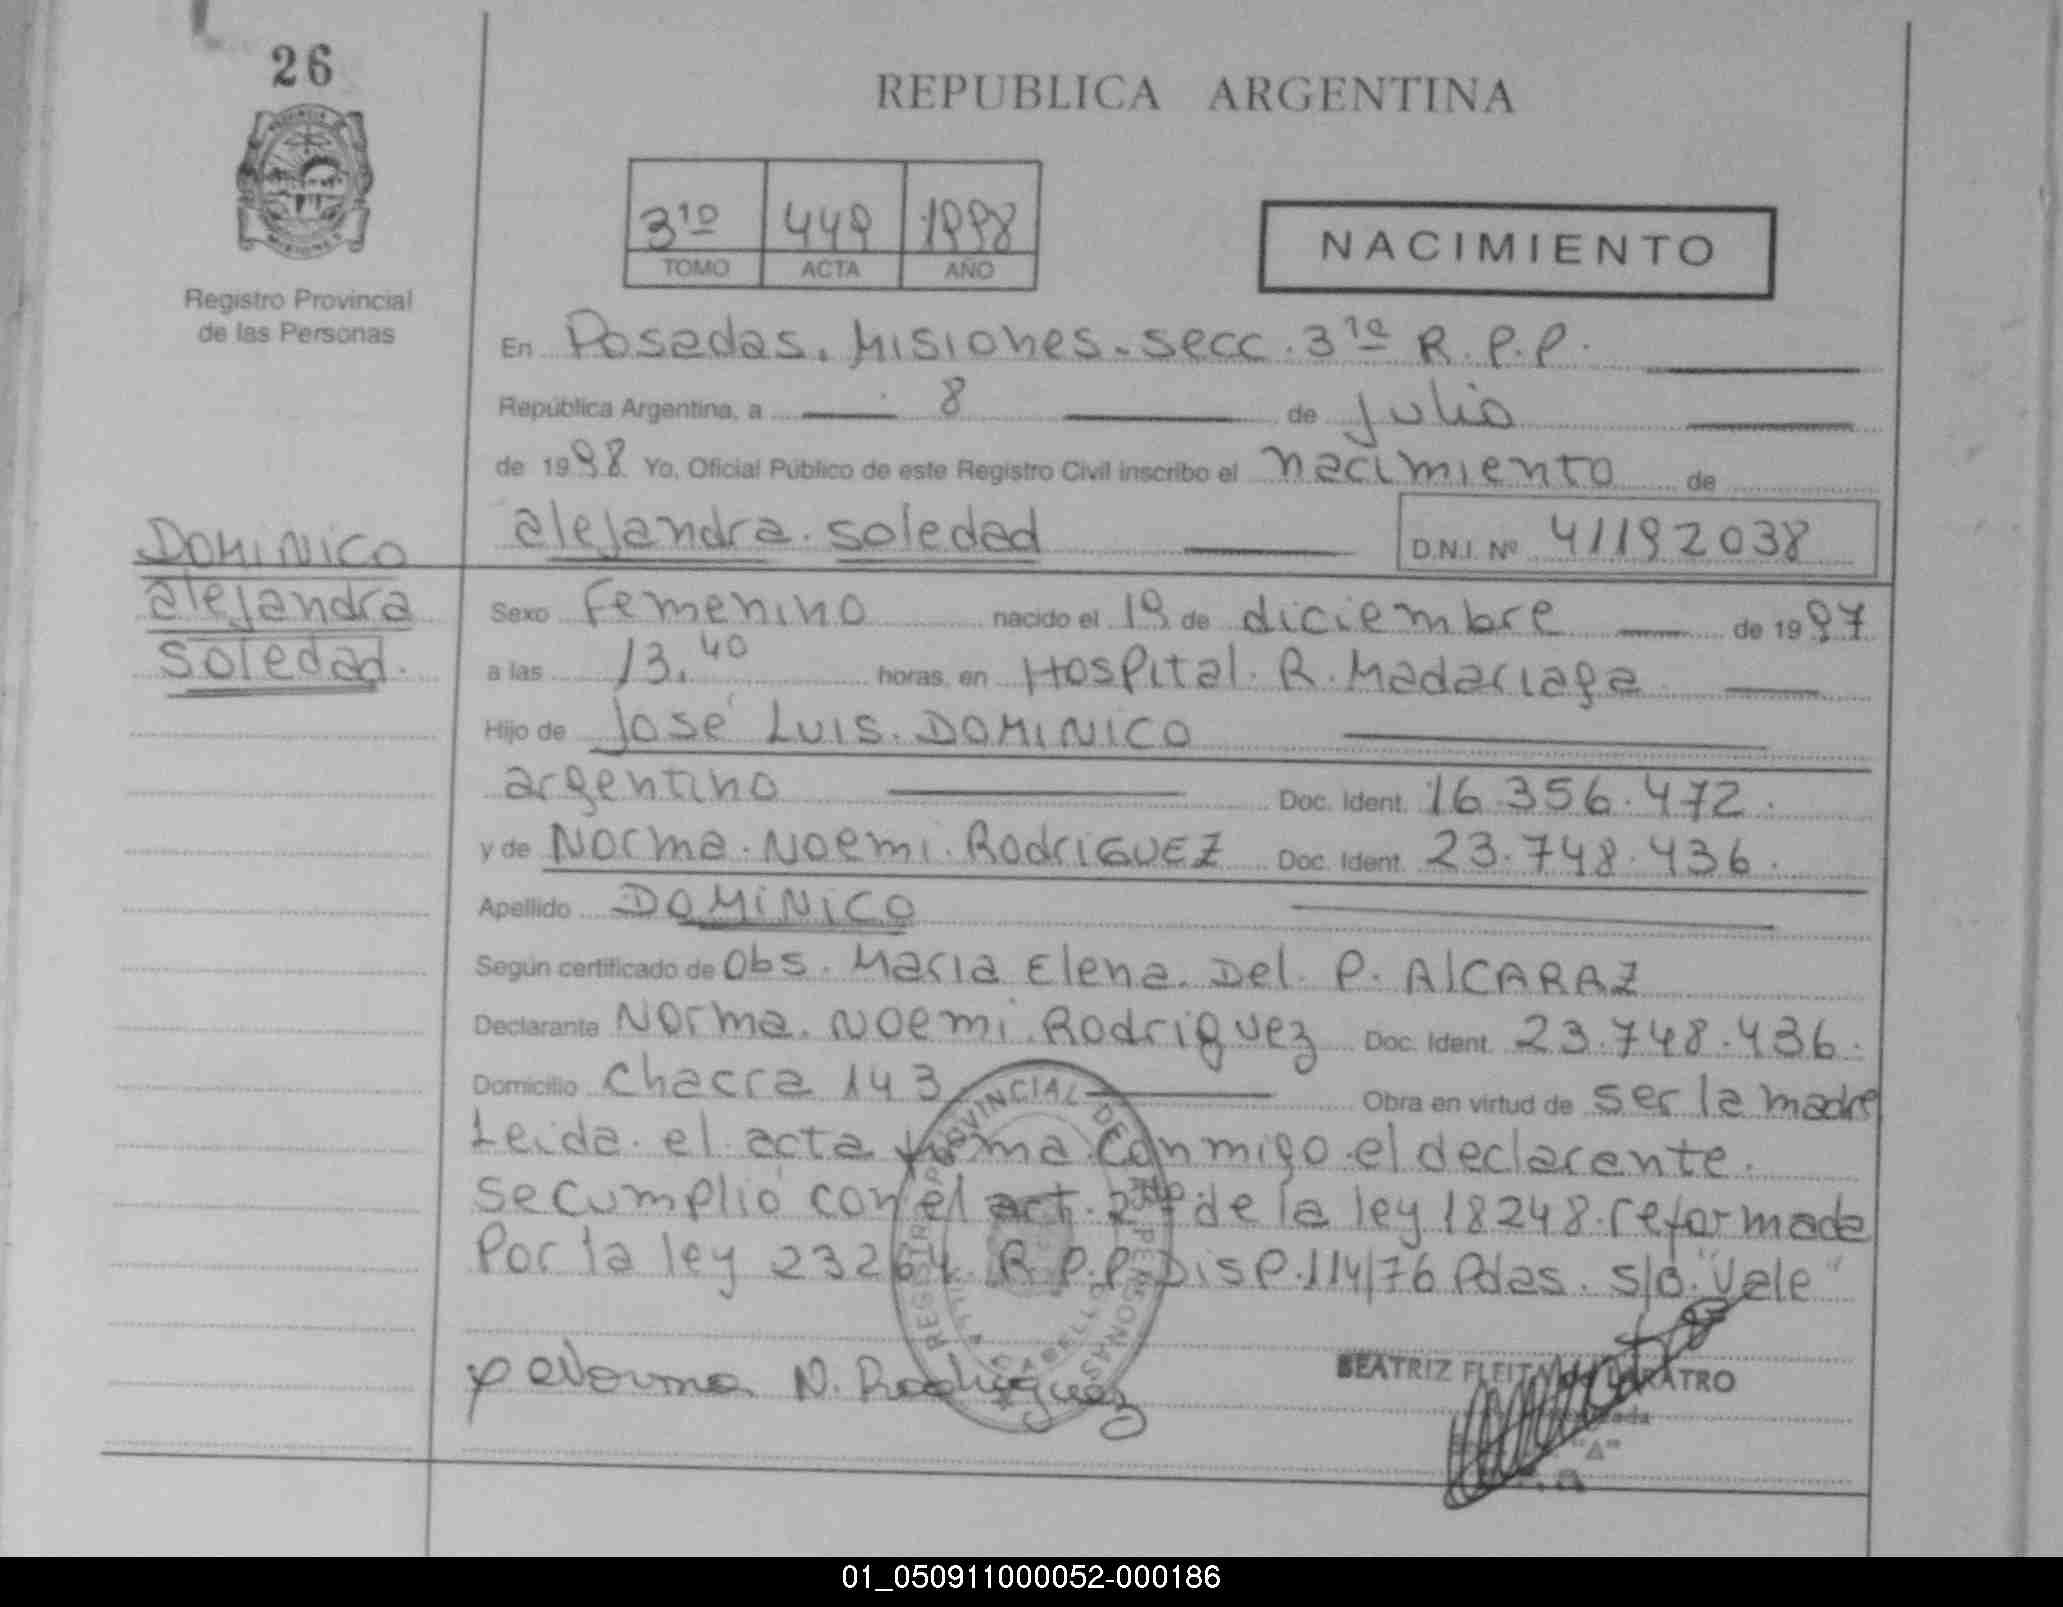 26
REPUBLICA ARGENTINA
3ro 449 1998
TOMO ACTA AÑO
NACIMIENTO
MISIONES
Registro Provincial
de las Personas
En Posadas. Misiones. secc. 3ra R.P.P.
República Argentina, a 8 de Julio
de 1998 Yo, Oficial Público de este Registro Civil inscribo el nacimiento de
alejandra. soledad D.N.I. Nº 41192038
DOMINICO
alejandra
soledad.
Sexo Femenino nacido el 19 de diciembre de 1997
a las 13.40 horas, en Hospital. R. Madariaga
Hijo de José Luis. DOMINICO
argentino Doc. Ident. 16.356.472.
y de Norma. Noemi. RodriGUEZ Doc. Ident. 23.748.436.
Apellido DOMINICO
Según certificado de Obs. Maria Elena. Del. P. AlCARAZ
Declarante Norma. Noemi. Rodriguez Doc. Ident. 23.748.436.
Domicilio chacra 143 Obra en virtud de ser la madre
Leida. el acta firma conmigo el declarante.
se cumplió con el art. 2 de la ley 18248. reformada
Por la ley 23264. R.P.P. Disp. 114/76 Pdas. s/b. "Vale"
REGISTRO PROVINCIAL DE PERSONAS
Norma N. Rodriguez
BEATRIZ FLEITA
"A"
01_050911000052-000186